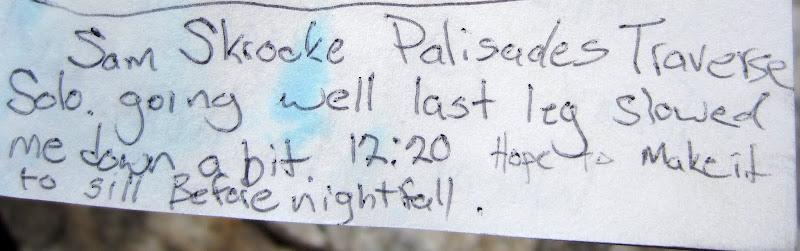 Sam Skrocke Palisades Traverse
Solo. going well last leg slowed
me down a bit. 12:20 Hope to Make it
to sill Before nightfall.